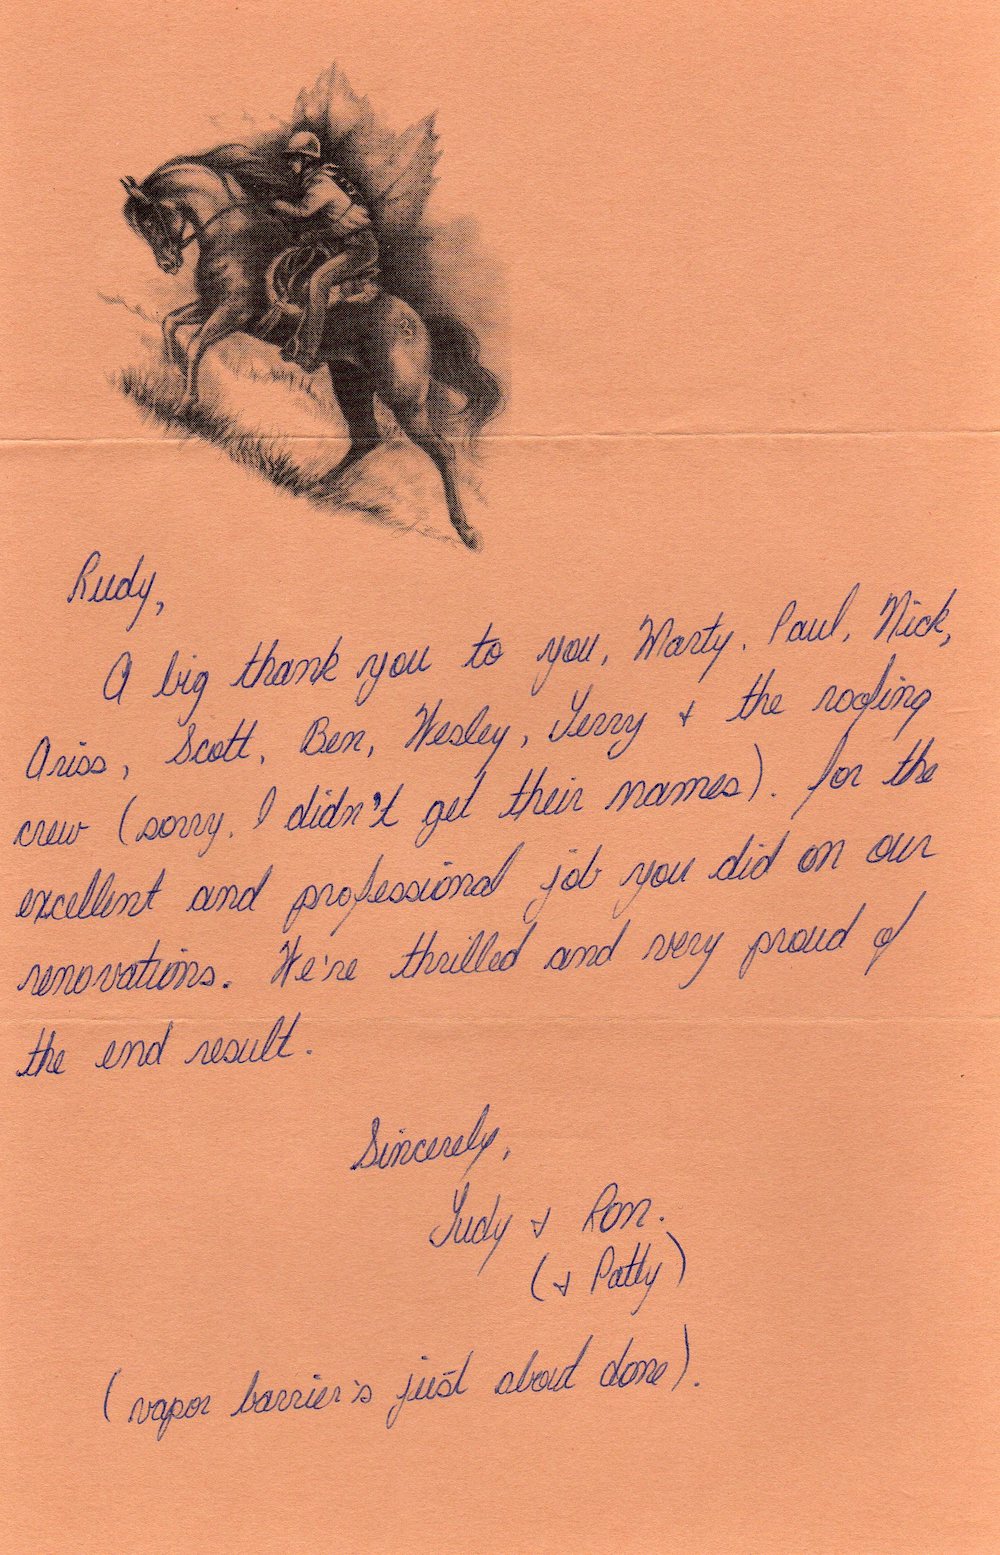 Rudy,
A big thank you to you, Marty, Paul, Nick,
Ariss, Scott, Ben, Wesley, Terry + the roofing
crew (sorry, I didn't get their names). for the
excellent and professional job you did on our
renovations. We're thrilled and very proud of
the end result.
Sincerely,
Judy + Ron.
(+ Patty)
(vapor barrier's just about done).